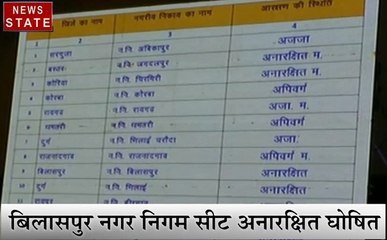 NEWS
STATE
जिले का नाम नगरीय निकाय का नाम आरक्षण की स्थिति
1 2 3 4
1 सरगुजा न.नि. अंबिकापुर अजजा
2 बस्तर न.नि. जगदलपुर अनारक्षित म.
3 कोरिया न.नि. चिरमिरी अनारक्षित
4 कोरबा न.नि. कोरबा अपिवर्ग
5 रायगढ न.नि. रायगढ अजा. म.
6 धमतरी न.नि. धमतरी अपिवर्ग
7 दुर्ग न.नि. भिलाई चरौदा अजा.
8 राजनांदगांव न.नि. राजनांदगांव अपिवर्ग म.
9 बिलासपुर न.नि. बिलासपुर अनारक्षित
10 दुर्ग न.नि. भिलाई अनारक्षित
11 रायपुर न.नि.
बिलासपुर नगर निगम सीट अनारक्षित घोषित